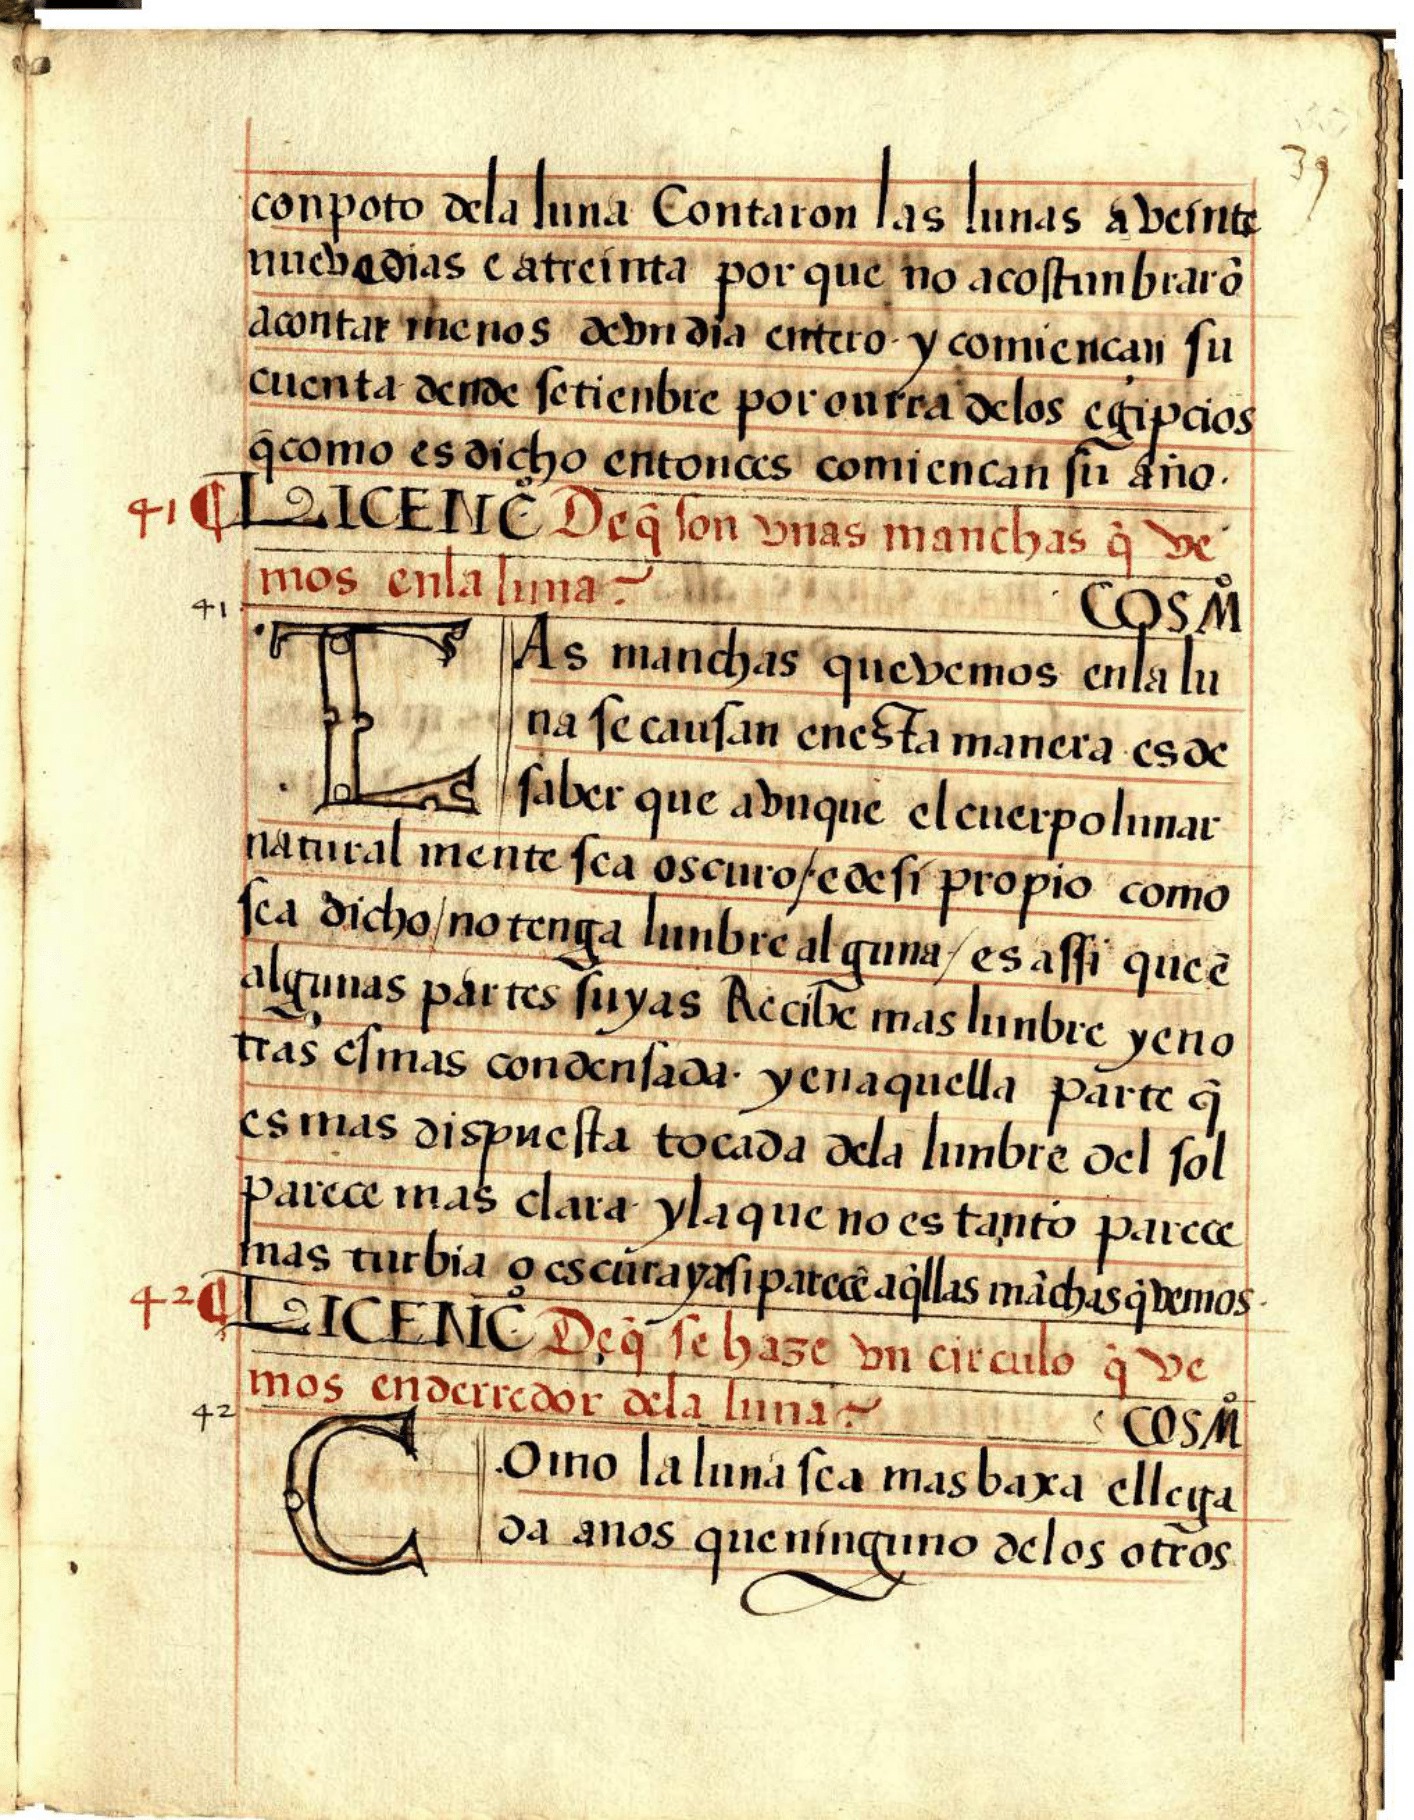 39
conpoto dela luna Contaron las lunas a veinte
nueve dias e a treinta por que no acostunbrarõ
a contar menos de vn dia entero · y comiençan su
cuenta dende setienbre por onrra delos egipcios
q̃ como es dicho entonces comiencan su año ·
41 ¶ LICENC̊ De q̃ son vnas manchas q̃ ve
mos enla luna ~
COSM̊
41
LAs manchas que vemos enla lu
na se causan enesta manera · es de
saber que avnque el cuerpo lunar
natural mente sea oscuro / e de si propio como
sea dicho / no tenga lunbre alguna / es assi que ẽ
algunas partes suyas Recibe mas lunbre y en o
tras es mas condensada · y en aquella parte q̃
es mas dispuesta tocada dela lunbre del sol
parece mas clara · y la que no es tanto parece
mas turbia o escura y asi parecẽ aq̃llas mãchas q̃ vemos ·
42 ¶ LICENC̊ De q̃ se haze vn circulo q̃ ve
mos enderredor dela luna ~
COSM̊
42
Como la luna sea mas baxa e llega
da a nos que ninguno delos otros